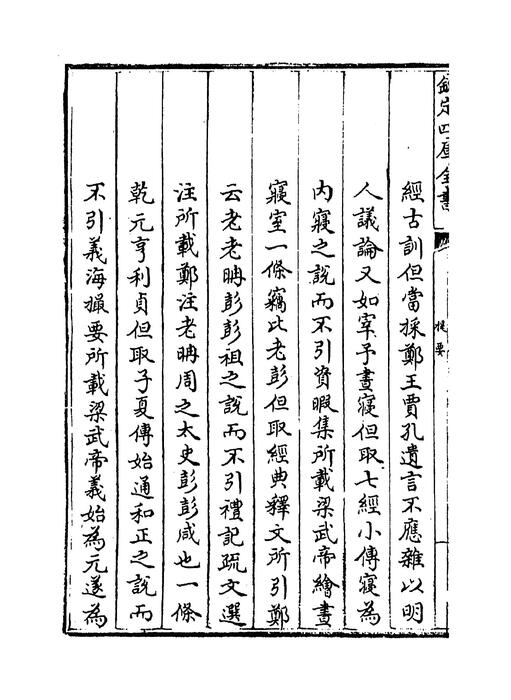 欽定四庫全書
提要
經古訓但當採鄭王賈孔遺言不應雜以明
人議論又如宰予晝寢但取七經小傳寢為
内寢之說而不引資暇集所載梁武帝繪畫
寢室一條竊比老彭但取經典釋文所引鄭
云老老聃彭彭祖之說而不引禮記疏文選
注所載鄭注老聃周之太史彭彭咸也一條
乾元亨利貞但取子夏傳始通和正之說而
不引義海撮要所載梁武帝義始為元遂為